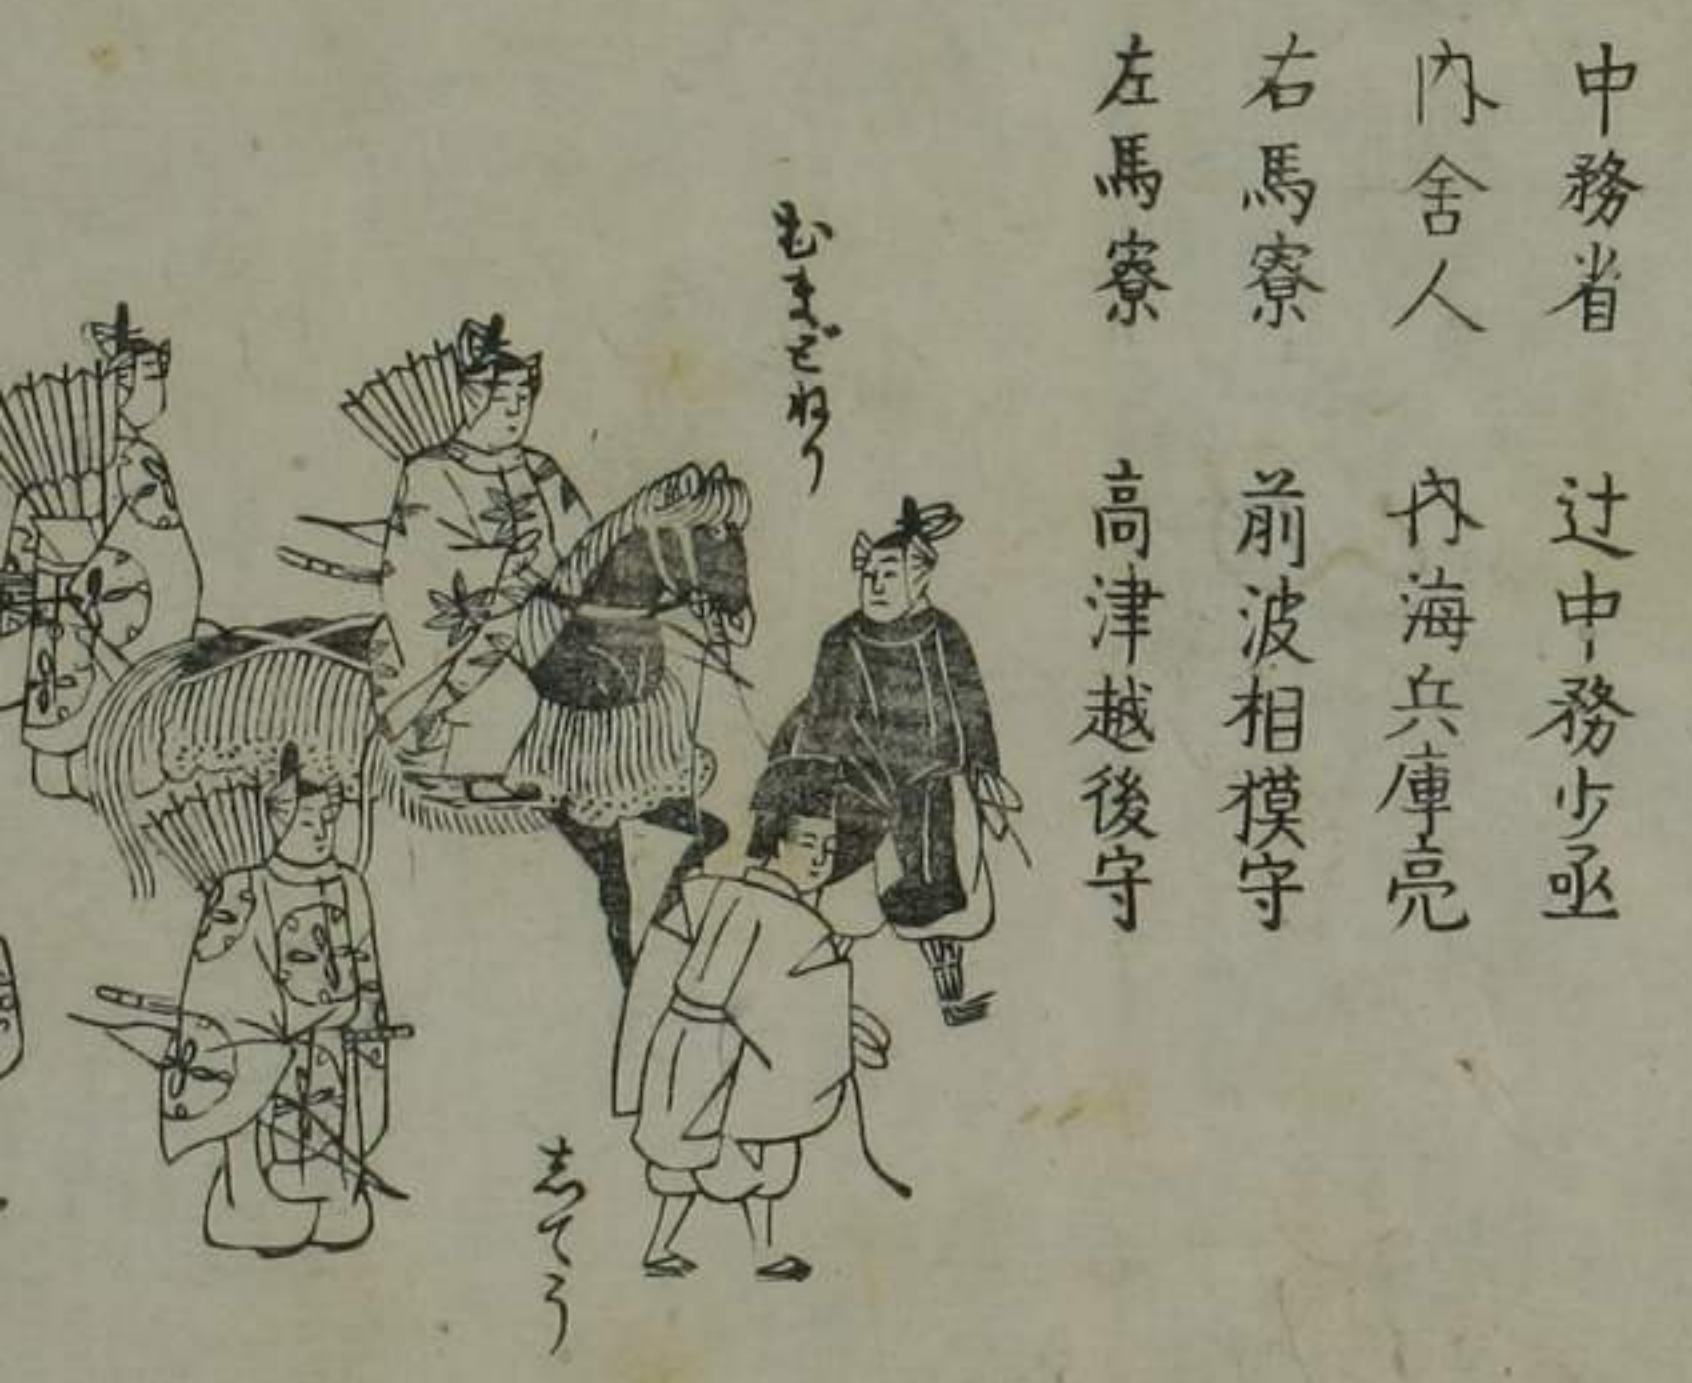 中務省 辻中務少丞
内舎人 内海兵庫亮
右馬寮 前波相摸守
左馬寮 高津越後守
むまぞねり
志てう